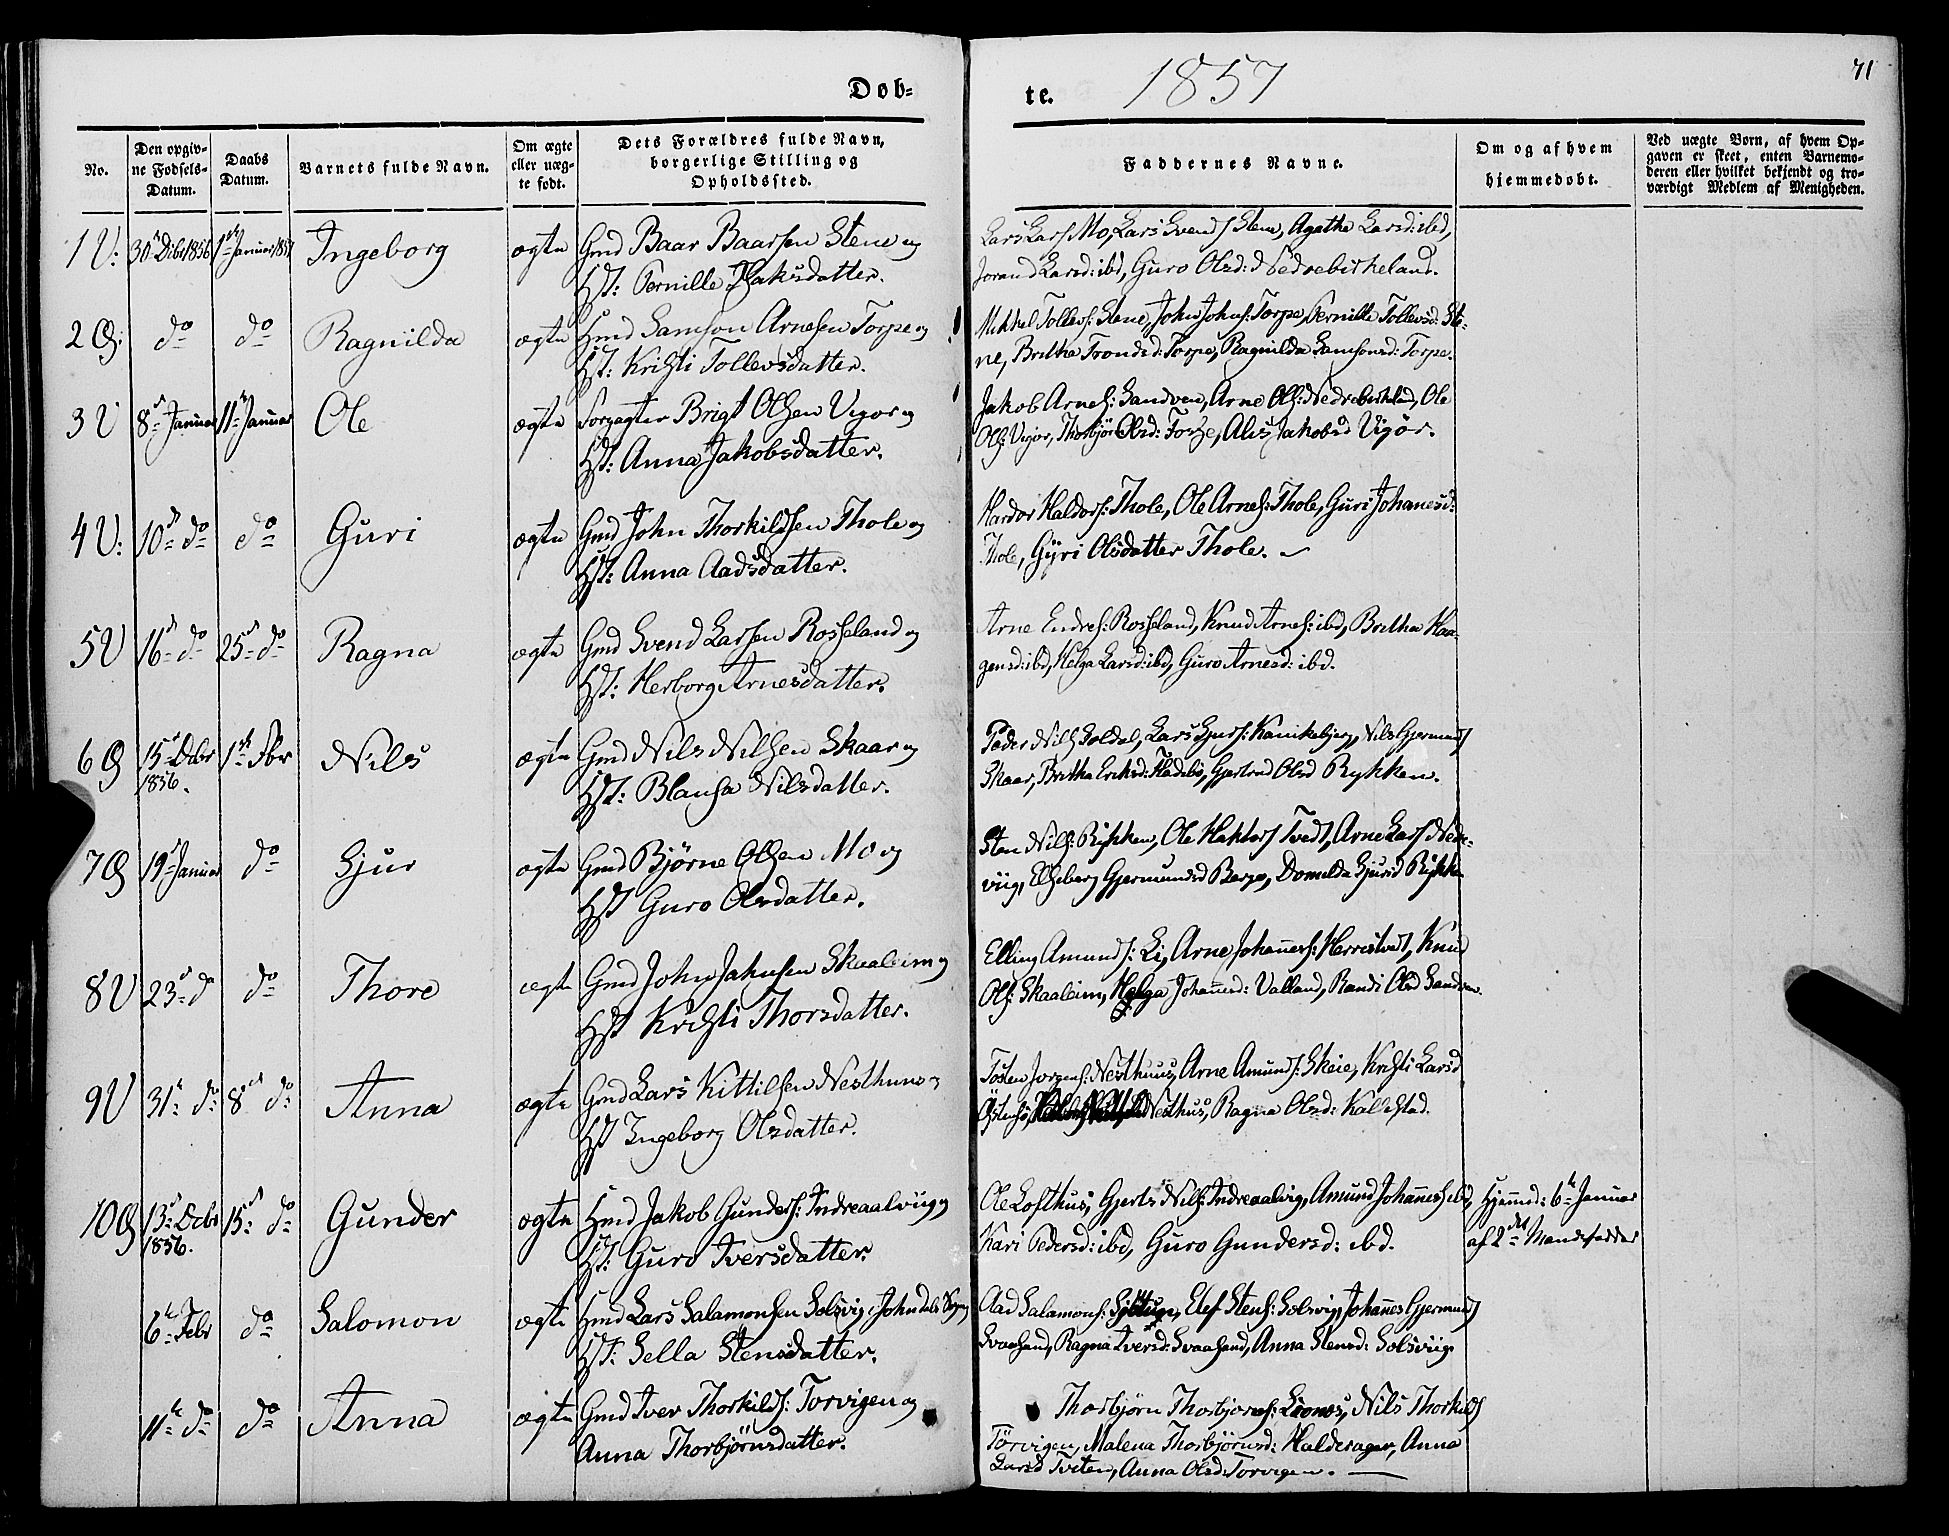 Døb-
te. 1857
71
No.
Den opgiv-
ne Fødsels-
Datum.
Daabs
Datum.
Barnets fulde Navn.
Om ægte
eller uæg-
te født.
Dets Forældres fulde Navn,
borgerlige Stilling og
Opholdssted.
Faddernes Navne.
Om og af hvem
hjemmedøbt.
Ved uægte Børn, af hvem Op-
gaven er skeet, enten Barnemo-
deren eller hvilket bekjendt og tro-
værdigt Medlem af Menigheden.
1 V: 30 Dcbr 1856 1 Januar 1857 Ingeborg ægte Gmd Baar Baarsen Stene og
Hst: Pernille Isaksdatter.
Lars Lars Mo, Lars Svends Stene, Agatha Larsd: ibd,
Jorand Larsd: ibd, Guro Olsd: Nedrebirkeland.
2 do do Ragnilda ægte Hmd Samson Arnesen Torpe og
Hst: Kristi Tollevsdatter.
Mikkel Tollevs: Stene, John Johns: Torpe, Pernille Tollevsd: Ste-
ne, Britha Trondsd: Torpe, Ragnilda Samsonsd: Torpe.
3 V 8 Januar 11 Januar Ole ægte Forpagter Brigt Olsen Vigør og
Hst: Anna Jakobsdatter.
Jakob Arnes: Sandven, Arne Ols: Nedrebirkeland, Ole
Ols: Vigør, Thorbjør Olsd: Torpe, Alis Jakobsd Vigør.
4 V: 10 do do Guri ægte Gmd John Thorkildsen Thole og
Hst: Anna Aadsdatter.
Hardor Haldors: Thole, Ole Arnes: Thole, Guri Johanesd:
Thole, Gyri Olsdatter Thole.
5 V 16 do 25 do Ragna ægte Gmd Svend Larsen Rosseland og
Hst: Herborg Arnesdatter.
Arne Endres: Rosseland, Knud Arnes: ibd, Britha Haa-
gensd: ibd, Helga Larsd: ibd, Guro Arnesd: ibd.
6 15 Dcbr 1 Fbr Nils ægte Gmd Nils Nilsen Skaar og
1856.
Hst: Blansa Nilsdatter.
Peder Nils Soldal, Lars Sjurs: Kanikebjerg, Nils Gjermunds
Skaar, Britha Eriksd: Fladebø, Gjertrud Olsd Rykken.
7 19 Januar do Sjur ægte Gmd Bjørne Olsen Mo og
Hst Guro Olsdatter.
Sten Nils: Rykken, Ole Haktors Tvedt, Arne Lars Nedre-
viig, Elseberg Gjermundsd Berge, Domnilda Sjursd Rykke
8 V 23 do do Thore ægte Gmd John Johnsen Skaaleim og
Hst Kristi Thorsdatter.
Elling Amunds: Li, Arne Johannes: Herreistvedt, Knud
Ols: Skaaleim, Helga Johannesd: Valland, Randi Olsd Sandven.
9 V 31 do 8 do Anna ægte Gmd Lars Kittilsen Nesthuus og
Hst Ingeborg Olsdatter.
Tosten Jorgens: Nesthuus, Arne Amunds: Skeie, Kristi Larsd
Østensø, Nesthus, Ragna Olsd: Kallestad.
10 13 Dcbr 15 do Gunder ægte Hmd Jakob Gunders: Indreaalviig og
1856.
Hst: Guro Iversdatter
Ole Lofthus, Gjerts Nils: Indreaalvig, Amund Johannes ibd,
Kari Pedersd: ibd, Guro Gundersd: ibd.
Hjemmed: 6 Januar
af 2 Mandsfadder
6 Febr do Salomon ægte Hmd Lars Salamonsen Solsvig, Johndals Sogn
Hst: Sella Stensdatter.
Aad Salamons: Elef Stens: Solsvig, Johannes Gjermunds
Svaasand, Ragna Iversd: Svaasand, Anna Stensd: Solsviig
11 do do Anna ægte Gmd Iver Thorkilds: Torvigen og
Anna Thorbjørnsdatter.
Thorbjørn Thorbjørns: Nils Thorkilds
Torvigen, Malena Thorbjørnsd: Halderager, Anna
Larsd Tveten, Anna Olsd: Torvigen.